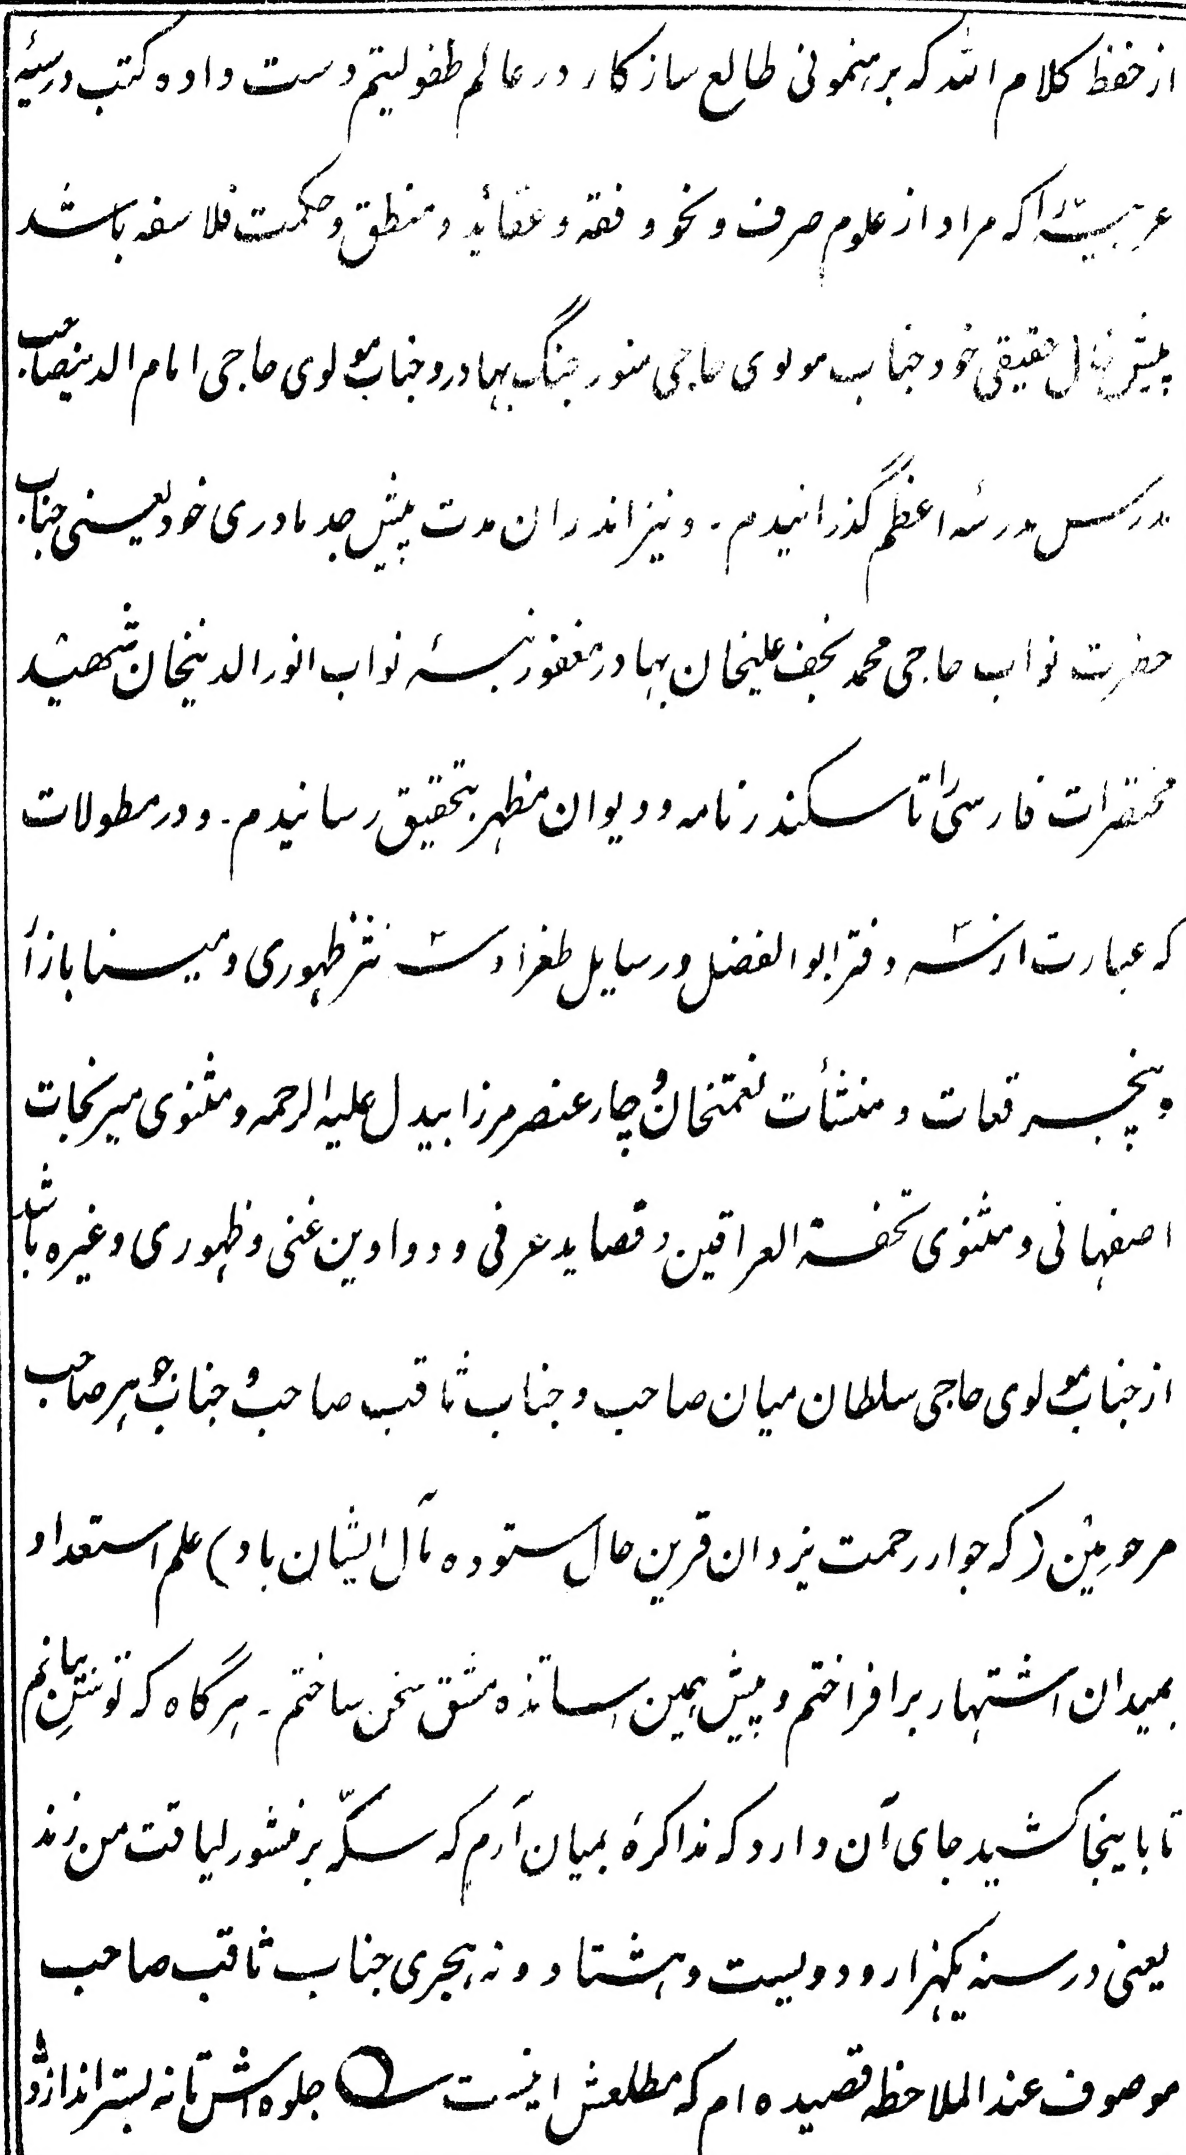 از حفظ کلام الله که برهنمونی طالع سازگار در عالم طفولیتم دست داده کتب درسیهٔ
عربیه را که مراد از علوم صرف و نحو و فقه و عقائد و منطق و حکمت فلاسفه باشد
پیش خال حقیقی خود جناب مولوی حاجی منور جنگ بهادر و جناب مولوی حاجی امام الدینصاحب
مدرس مدرسهٔ اعظم گذرانیدم ۔ و نیز اندران مدت پیش جد مادری خود یعنی جناب
حضرت نواب حاجی محمد نجف علیخان بهادر مغفور نبسهٔ نواب انورالدینخان شهید
مختصرات فارسی را تا سکندر نامه و دیوان مظهر بتحقیق رسانیدم ۔ و در مطولات
که عبارت از سه دفتر ابوالفضل و رسایل طغرا و سه نثر ظهوری و مینا بازار
و پنجرقعات و منشأت نعمتخان و چار عنصر مرزا بیدل علیه الرحمه و مثنوی میر نجات
اصفهانی و مثنوی تحفة العراقین و قصاید عرفی و دواوین غنی و ظهوری و غیره باشد
از جناب مولوی حاجی سلطان میان صاحب و جناب ثاقب صاحب و جناب جوهر صاحب
مرحومین (که جوار رحمت یزدان قرین حال ستوده مآل ایشان باد) علم استعداد
بمیدان اشتهار برافراختم و پیش همین اساتذه مشق سخن ساختم ۔ هرگاه که توسن بیانم
تا باینجا کشید جای آن دارد که مذاکرهٔ بمیان آرم که سکّه بر منشور لیاقت من زند
یعنی در سنه یکهزار و دویست و هشتاد و نه هجری جناب ثاقب صاحب
موصوف عند الملاحظه قصیده ام که مطلعش اینست جلوه اش تا نه بستر اندازد